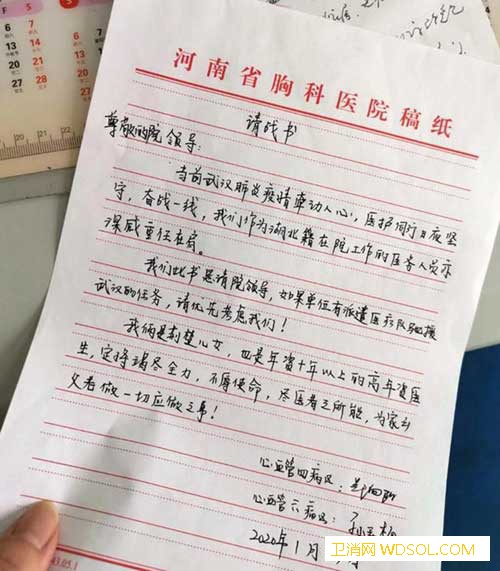 河南省胸科医院稿纸
请战书
尊敬的院领导：
当前武汉肺炎疫情牵动人心，医护同行日夜坚
守，奋战一线，我们作为湖北籍在院工作的医务人员亦
深感重任在肩。
我们此书恳请院领导，如果单位有派遣医疗队驰援
武汉的任务，请优先考虑我们！
我俩是荆楚儿女，也是年资十年以上的高年资医
生，定将竭尽全力，不辱使命，尽医者之所能，为家乡
父老做一切应做之事！
心血管四病区：
心血管六病区：
2020年1月
卫消网 WDSOL.COM